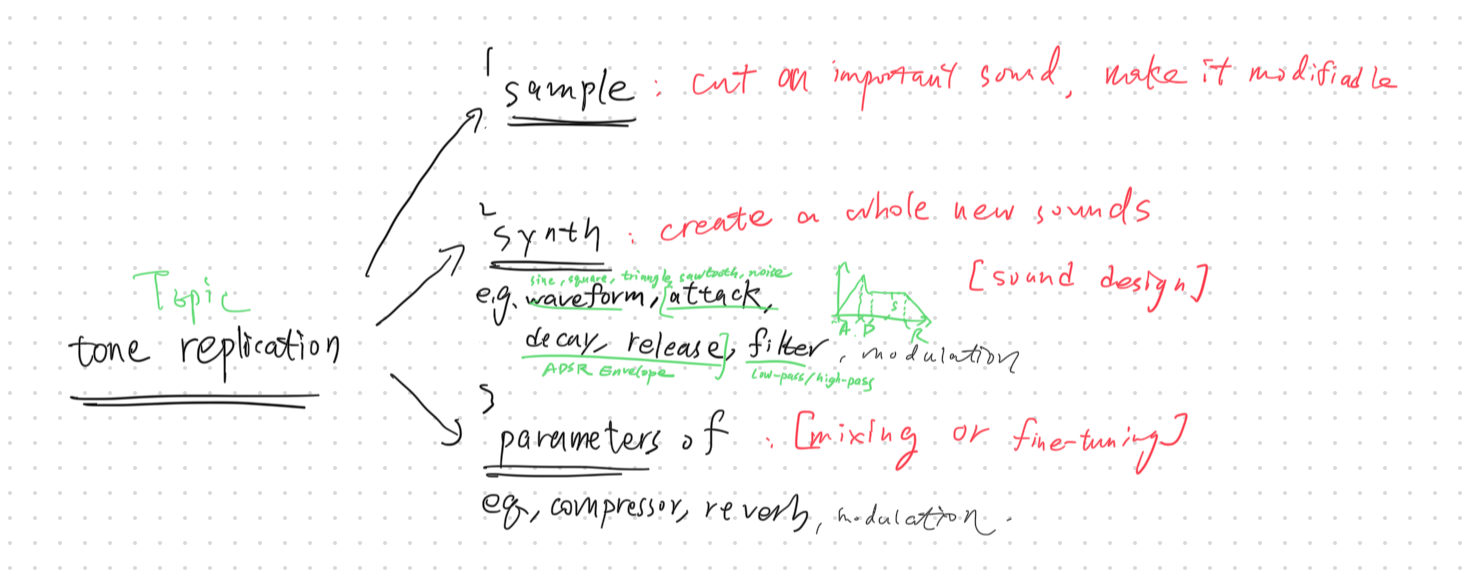 1
sample : cut an important sound, make it modifiable
2
synth : create a whole new sounds
[sound design]
sine, square, triangle, sawtooth, noise
e.g. waveform, [attack,
decay, release], filter, modulation
ADSR Envelope
Low-pass/high-pass
A D S R
Topic
tone replication
3
parameters of : [mixing or fine-tuning]
eq, compressor, reverb, modulation.